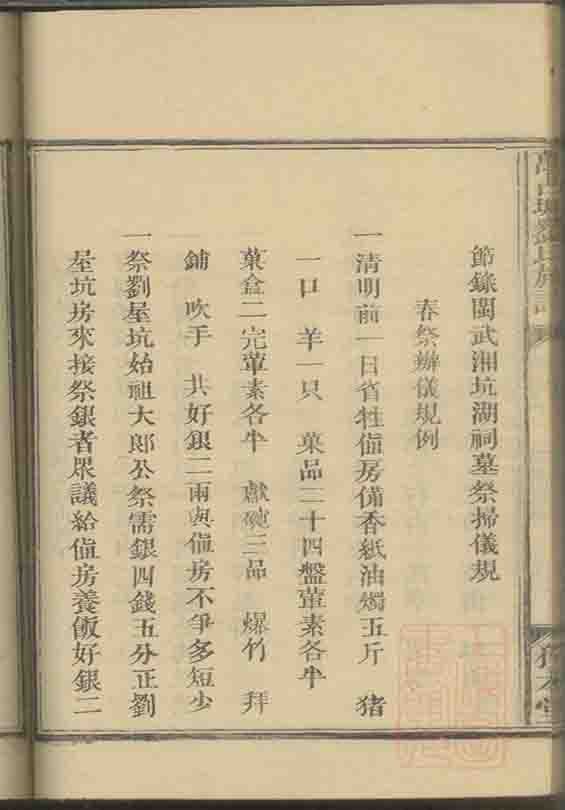 節錄閩武湘坑湖祠墓祭掃儀規
春祭辦儀規例
一清明前一日省牲值房備香紙油燭五斤 猪
一口 羊一只 菓品二十四盤葷素各半
菓盒二完葷素各半 獻碗三品 爆竹 拜
鋪 吹手 共好銀二兩與值房不爭多短少
一祭劉屋坑始祖大郎公祭需銀四錢五分正劉
屋坑房來接祭銀者眾議給值房養飯好銀二